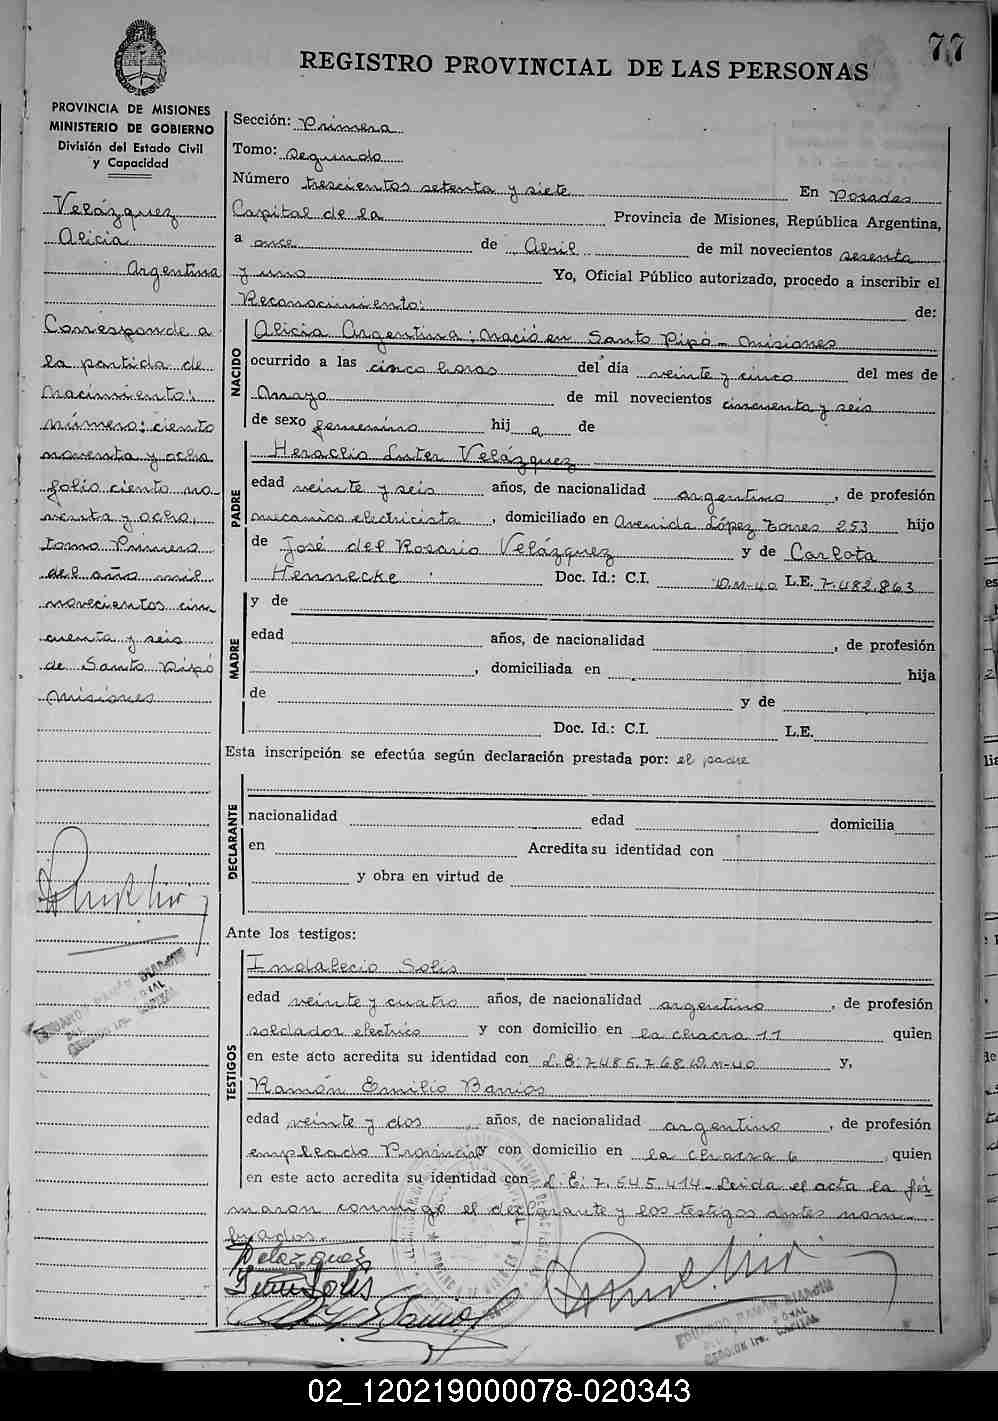 77
REGISTRO PROVINCIAL DE LAS PERSONAS
PROVINCIA DE MISIONES
MINISTERIO DE GOBIERNO
División del Estado Civil
y Capacidad
Velázquez
Alicia
Argentina
Corresponde a
la partida de
nacimiento:
número: ciento
noventa y ocho
folio ciento no-
venta y ocho,
tomo Primero
del año mil
novecientos cin
cuenta y seis
de Santo Pipó
Misiones
Sección: Primera
Tomo: segundo
Número trescientos setenta y siete En Posadas
Capital de la Provincia de Misiones, República Argentina,
a once de Abril de mil novecientos sesenta
y uno Yo, Oficial Público autorizado, procedo a inscribir el
Reconocimiento: de:
NACIDO
Alicia Argentina; nació en Santo Pipó - Misiones
ocurrido a las cinco horas del día veinte y cinco del mes de
Mayo de mil novecientos cincuenta y seis
de sexo femenino hij a de
PADRE
Heraclio Luter Velázquez
edad veinte y seis años, de nacionalidad argentino, de profesión
mecanico electricista, domiciliado en Avenida López Torres 253 hijo
de José del Rosario Velázquez y de Carlota
Hennecke Doc. Id.: C.I. D.M-40 L.E. 7.482.863
MADRE
y de
edad años, de nacionalidad, de profesión
, domiciliada en hija
de y de
Doc. Id.: C.I. L.E.
Esta inscripción se efectúa según declaración prestada por: el padre
DECLARANTE
nacionalidad edad domicilia
en Acredita su identidad con
y obra en virtud de
Ante los testigos:
TESTIGOS
Indalecio Solis
edad veinte y cuatro años, de nacionalidad argentino, de profesión
soldador electrico y con domicilio en la chacra 11 quien
en este acto acredita su identidad con L.E: 7.485.768 D.M-40 y,
Ramón Emilio Barrios
edad veinte y dos, años, de nacionalidad argentino, de profesión
empleado Provincial y con domicilio en la chacra 6, quien
en este acto acredita su identidad con L.E: 7.545.414- Leida el acta la fir-
maron conmigo el declarante y los testigos antes nom-
brados.
Velazquez
Solis
02_120219000078-020343